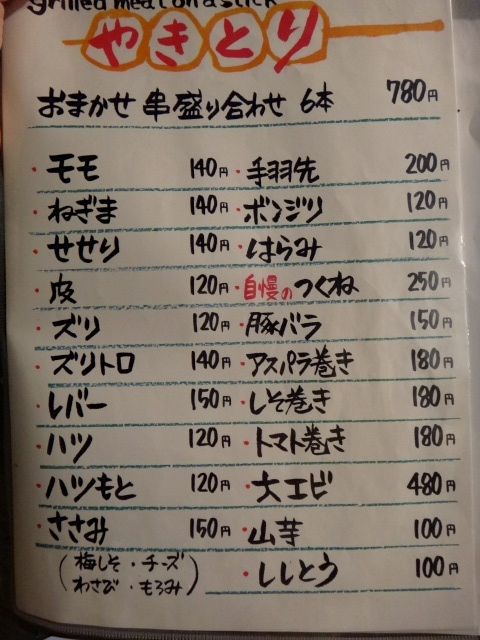 grilled meat on a stick
やきとり
おまかせ 串盛り合わせ 6本 780円
・モモ 140円 ・手羽先 200円
・ねぎま 140円 ・ボンジリ 120円
・せせり 140円 ・はらみ 120円
・皮 120円 ・自慢のつくね 250円
・ズリ 120円 ・豚バラ 150円
・ズリトロ 140円 ・アスパラ巻き 180円
・レバー 150円 ・しそ巻き 180円
・ハツ 120円 ・トマト巻き 180円
・ハツもと 120円 ・大エビ 480円
・ささみ 150円 ・山芋 100円
(梅しそ・チーズ
わさび・もろみ) ・ししとう 100円